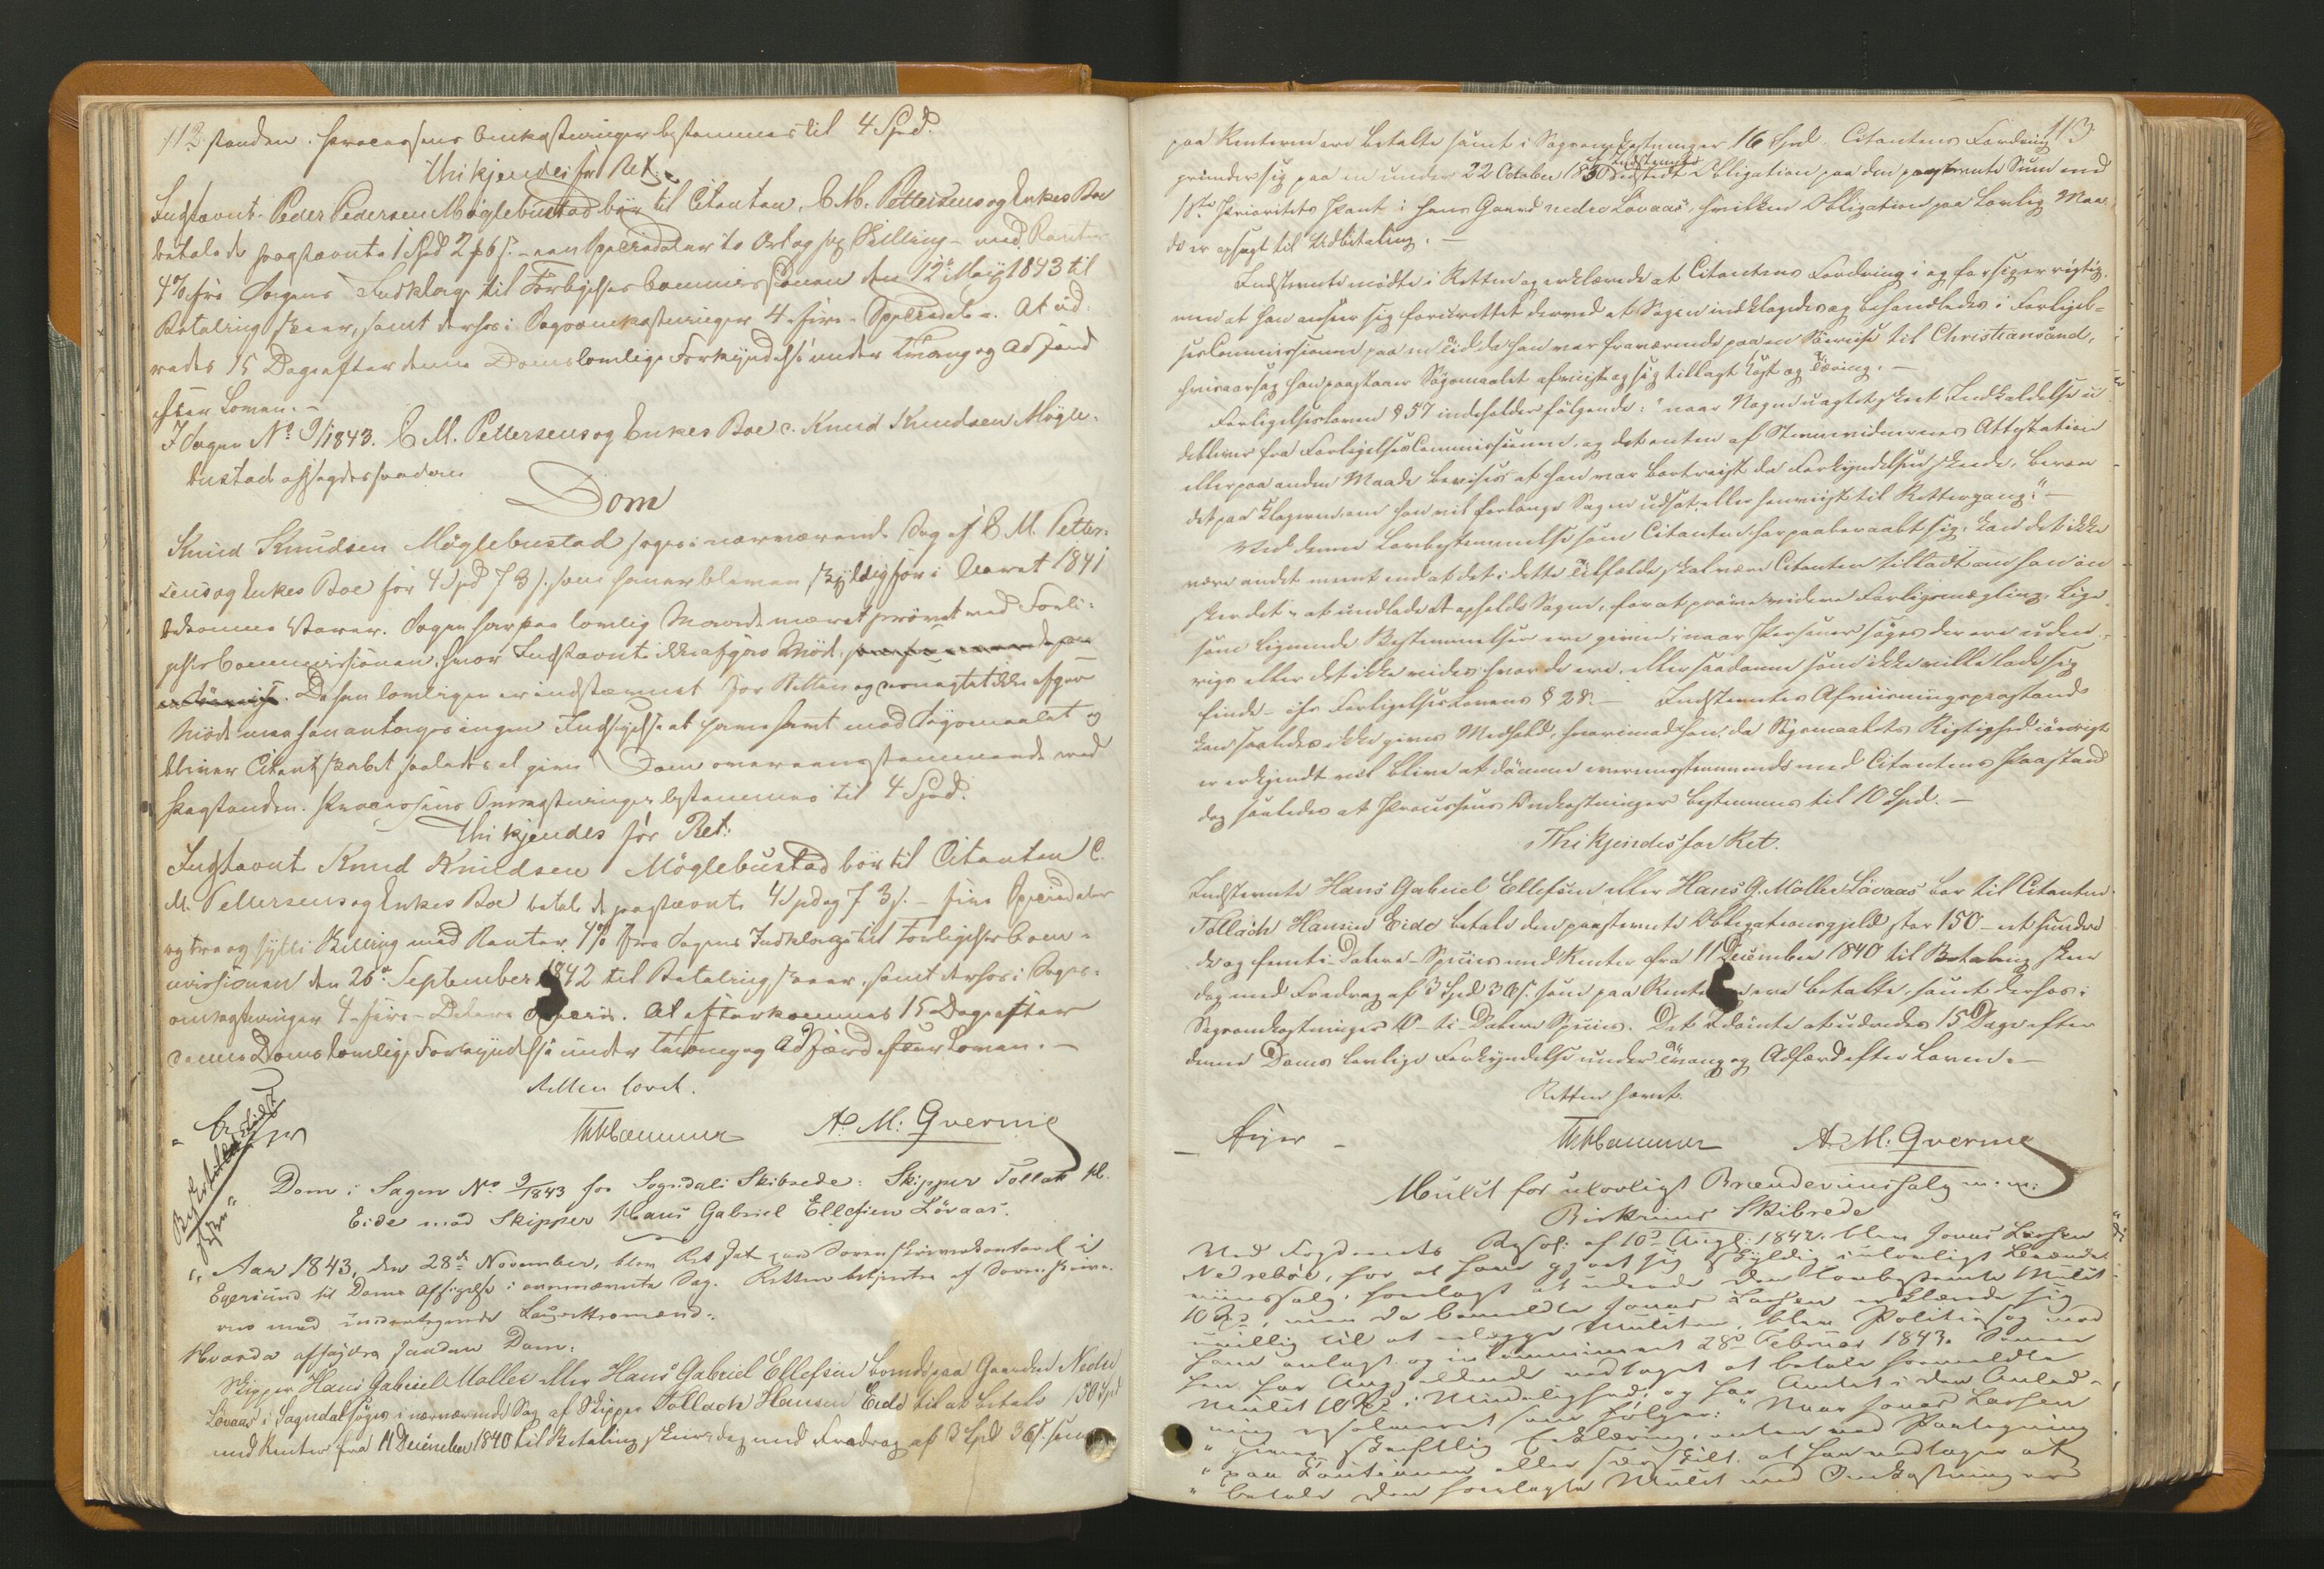 112. standen. Processens Omkostninger bestemmes til 4 Spd.
Thi kjendes for Ret:
Indstævnte Peder Pedersen Möglebustad bör til Citanten, C. M. Pettersens og Enkes Boe
betale de paastævnte 1 Spd 2 ₰ 6 s. – een Speciedaler to Ort og sex Skilling – med Renter
4 % fra Sagens Indklage til Forligelses Commissionen den 12te Maij 1843 til
Betaling skeer, samt derhos i Sagsomkostninger 4 – fire – Speciedaler. At ud-
redes 15 Dage efter denne Doms lovlige Forkyndelse under Tvang og Adfærd
efter Loven. –
I Sagen No 9/1843. C M. Pettersens og Enkes Boe c. Knud Knudsen Mögle-
bustad afsagdes saadan
Dom
Knud Knudsen Möglebustad söges i nærværende Sag af C. M. Petter-
sens og Enkes Boe for 4 Spd 73 s. som han er bleven skyldig for i Aaret 1841
bekomne Varer. Sagen har paa lovlig Maade været prövet ved Forli-
gelses Commissionen, hvor Indstævnte ikke afgav Möd.
Da han lovligen er indstævnet for Retten og uagtet ikke afgav
Möde maa han antages ingen Indsigelse at have havt mod Sögsmaalet og
bliver Citantskabet saaledes at give Dom overeensstemmende med
Paastanden. Processens Omkostninger bestemmes til 4 Spd.
Thi kjendes for Ret:
Indstævnte Knud Knudsen Möglebustad bör til Citanten C.
M. Pettersens og Enkes Boe betale de paastævnte 4 Spd og 73 s. – fire Speciedaler
og tre og sytti Skilling med Renter 4 % fra Sagens Indklage til Forligelses Com-
missionen den 26de September 1842 til Betaling skeer, samt derhos i Sags-
omkostninger 4 – fire – Daler Species. At efterkommes 15 Dage efter
denne Doms lovlige Forkyndelse under Tvang og Adfærd efter Loven. –
Retten hævet.
A. M. Qverme
Dom i Sagen No 9/1843 for Sogndals Skibrede: Skipper Tollak H.
Eide mod Skipper Hans Gabriel Ellefsen Lövaas.
Aar 1843, den 28de November, blev Ret sat paa Sorenskriverkontoret i
Egersund til Doms Afsigelse i ovennævnte Sag. Retten betjentes af Sorenskrive-
ren med undertegnede Laugrettesmænd.
Hvorda afsagdes saadan Dom:
Skipper Hans Gabriel Møller eller Hans Gabriel Ellefsen boende paa Gaarden Nedre
Lövaas i Sogndal söges i nærværende Sag af Skipper Tollach Hansen Eide til at betale 150 Spd
med Renter fra 11 December 1840 til Betaling skeer, dog med Fradrag af 3 Spd 36 s. som
113.
paa Renterne ere betalte samt i Sagsomkostninger 16 Spd. Citantens Fordring
grunder sig paa en under 22 October 1830 af Indstævnte udstedt Obligation paa den paastævnte Sum med
1ste Prioritets Pant i hans Gaard nedre Lövaas, hvilken Obligation paa lovlig Maa-
de er opsagt til Udbetaling. –
Indstævnte mödte i Retten og erklærede at Citantens Fordring i og for sig er rigtig.
men at han anseer sig forurettet derved at Sagen indklagedes og behandledes i Forligel-
sesCommissionen paa en Tid da han var fraværende paa en Söereise til Christiansand,
hvisaarsag han paastaaer Sögsmaalet afviist og sig tillagt Kost og Tæring. –
Forligelsesloven § 57 indeholder fölgende: "naar Nogen uagtet skeet Indkaldelse ud-
debliver fra ForligelsesCommissionen, og det enten af Stevnevidnernes Attestation
eller paa anden Maade bevises at han var bortreist da Forkyndelsen skeede, beroer
det paa Klageren, om han vil forlange Sagen udsat, eller henviist til Rettergang." –
Ved denne Lovbestemmelse som Citanten har paaberaabt sig, kan det ikke
være andet meent end at det i dette Tilfælde skal være Citanten tilladt om han ön-
sker det at undlade at opholde Sagen, for at pröve videre Forligsmægling. Lige-
som lignende Bestemmelser ere givne, naar Personer söges der ere uden-
rigs eller det ikke vides hvor de ere, eller saadanne som ikke ville lade sig
finde – cfr Forligelseslovens § 28. – Indstævntes Afviisningspaastand
kan saaledes ikke gives Medhold, hvorimod han, da Sögsmaalets Rigtighed iövrigt
er erkjendt vil blive at dömme overeensstemmende med Citantens Paastand
dog saaledes at Processens Omkostninger bestemmes til 10 Spd. –
Thi kjendes for Ret.
Indstævnte Hans Gabriel Ellefsen eller Hans G. Møller Lövaas bör til Citanten
Tollach Hansen Eide betale den paastævnte Obligationsgjeld stor 150 – et hundre-
de og femti – Daler – Species med Renter fra 11 December 1840 til Betaling skeer
dog med Fradrag af 3 Spd 36 s. som paa Renterne ere betalte, samt derhos i
Sagsomkostninger 10 – ti – Daler Species. Det Idömte at udredes 15 Dage efter
denne Doms lovlige Forkyndelse under Tvang og Adfærd efter Loven. –
Retten hævet.
A. M. Qverme
Mulct for ulovligt Brændeviinssalg m. m.
Birkrims Skibrede
Ved Fogderiets Resol: af 10de Augt: 1842. blev Jonas Larsen
Nedreböe, for at have gjort sig skyldig i ulovligt Brænde-
viinssalg, forelagt at udrede den lovbestemte Mulct
10 Spd, men da bemeldte Jonas Larsen erklærede sig
uvillig til at erlægge Mulcten, blev Politiesag mod
ham anlagt og incamineret 28de Februar 1843. Senere
har Ang. vedtaget at betale formeldte
Mulct 10 Spd i Mindelighed, og har Amtet i den Anled-
ning resolveret som fölger: "Naar Jonas Larsen
" giver skriftlig Erklæring, enten ved Paategning
" paa eller særskilt, at han vedtager at
" betale den forelagte Mulct med Omkostninger